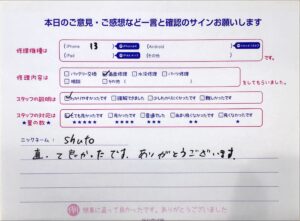 本日のご意見・ご感想など一言と確認のサインお願いします
修理機種は
iPhone 13
Android
iPad
その他
修理内容は
バッテリー交換 画面修理 水没修理 パーツ修理
その他
をしてもらいました。
スタッフの説明は
わかりやすかったです 理解できました 少しわかりにくかったです 難しかったです
スタッフの対応は
★星の数★
とても良かったです 良かったです 普通でした あまり良くなかったです 良くなかったです
★★★★★ ★★★★ ★★★ ★★ ★
ニックネーム： shuto
直って良かったです。ありがとうございます。
綺麗に直って良かったです。ありがとうございました